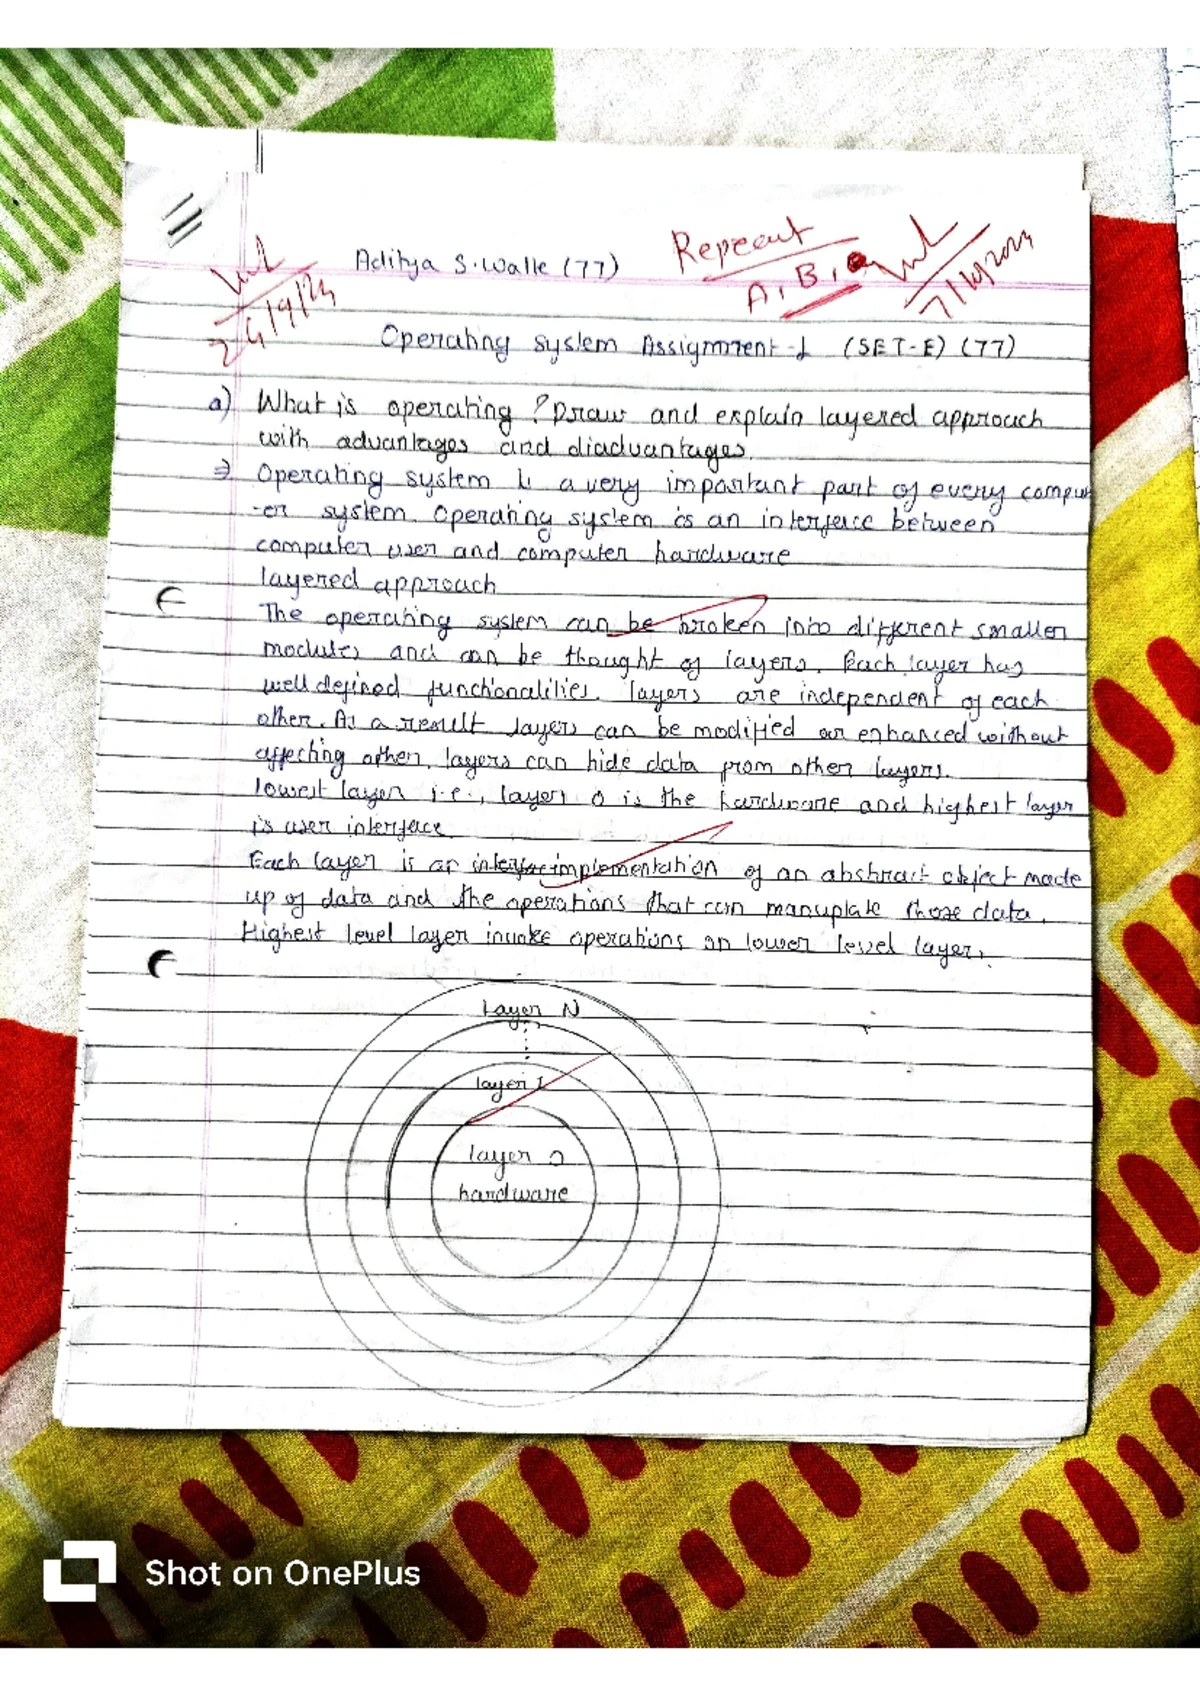 Aditya S. Walle (77)
Repeat
A, B,
24/9/24
7/10/2024
Operating system Assignment-1 (SET-E) (77)
a) What is operating ? Draw and explain layered approach
with advantages and diadvantages.
⇒ Operating system is a very important part of every comput
-er system. Operating system is an interface between
computer user and computer hardware
layered approach
The operating system can be broken into different smaller
modules and can be thought of layers. Each layer has
well defined functionalities. layers are independent of each
other. As a result layers can be modified or enhanced without
affecting other. layers can hide data from other layers.
lowest layer i.e., layer 0 is the hardware and highest layer
is user interface.
Each layer is an implementation of an abstract object made
up of data and the operations that can manuplate those data.
Highest level layer invoke operations on lower level layer.
Layer N
layer 1
layer 0
hardware
Shot on OnePlus